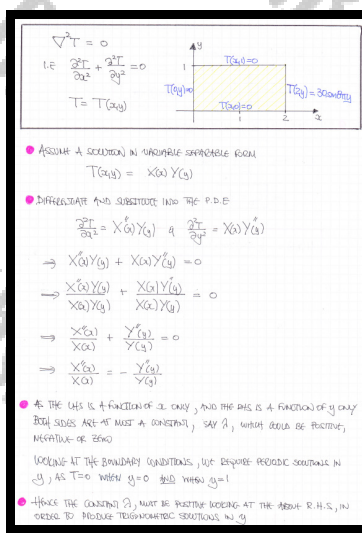 ∇²T = 0
I.E ∂²T/∂x² + ∂²T/∂y² = 0
T = T(x,y)
y
T(x,1)=0
1
T(0,y)=0
T(x,0)=0
1
2
x
ASSUME A SOLUTION IN VARIABLE SEPARABLE FORM
T(x,y) = X(x)Y(y)
DIFFERENTIATE AND SUBSTITUTE INTO THE P.D.E
∂²T/∂x² = X''(x)Y(y) & ∂²T/∂y² = X(x)Y''(y)
⇒ X''(x)Y(y) + X(x)Y''(y) = 0
⇒ X''(x)Y(y)/X(x)Y(y) + X(x)Y''(y)/X(x)Y(y) = 0
⇒ X''(x)/X(x) + Y''(y)/Y(y) = 0
⇒ X''(x)/X(x) = - Y''(y)/Y(y)
AS THE LHS IS A FUNCTION OF x ONLY, AND THE RHS IS A FUNCTION OF y ONLY
BOTH SIDES ARE AT MOST A CONSTANT, SAY λ, WHICH COULD BE POSITIVE,
NEGATIVE OR ZERO
LOOKING AT THE BOUNDARY CONDITIONS, WE REQUIRE PERIODIC SOLUTIONS IN
y, AS T=0 WHEN y=0 AND WHEN y=1
HENCE THE CONSTANT λ, MUST BE POSITIVE LOOKING AT THE ABOVE R.H.S, IN
ORDER TO PRODUCE TRIGONOMETRIC SOLUTIONS IN y